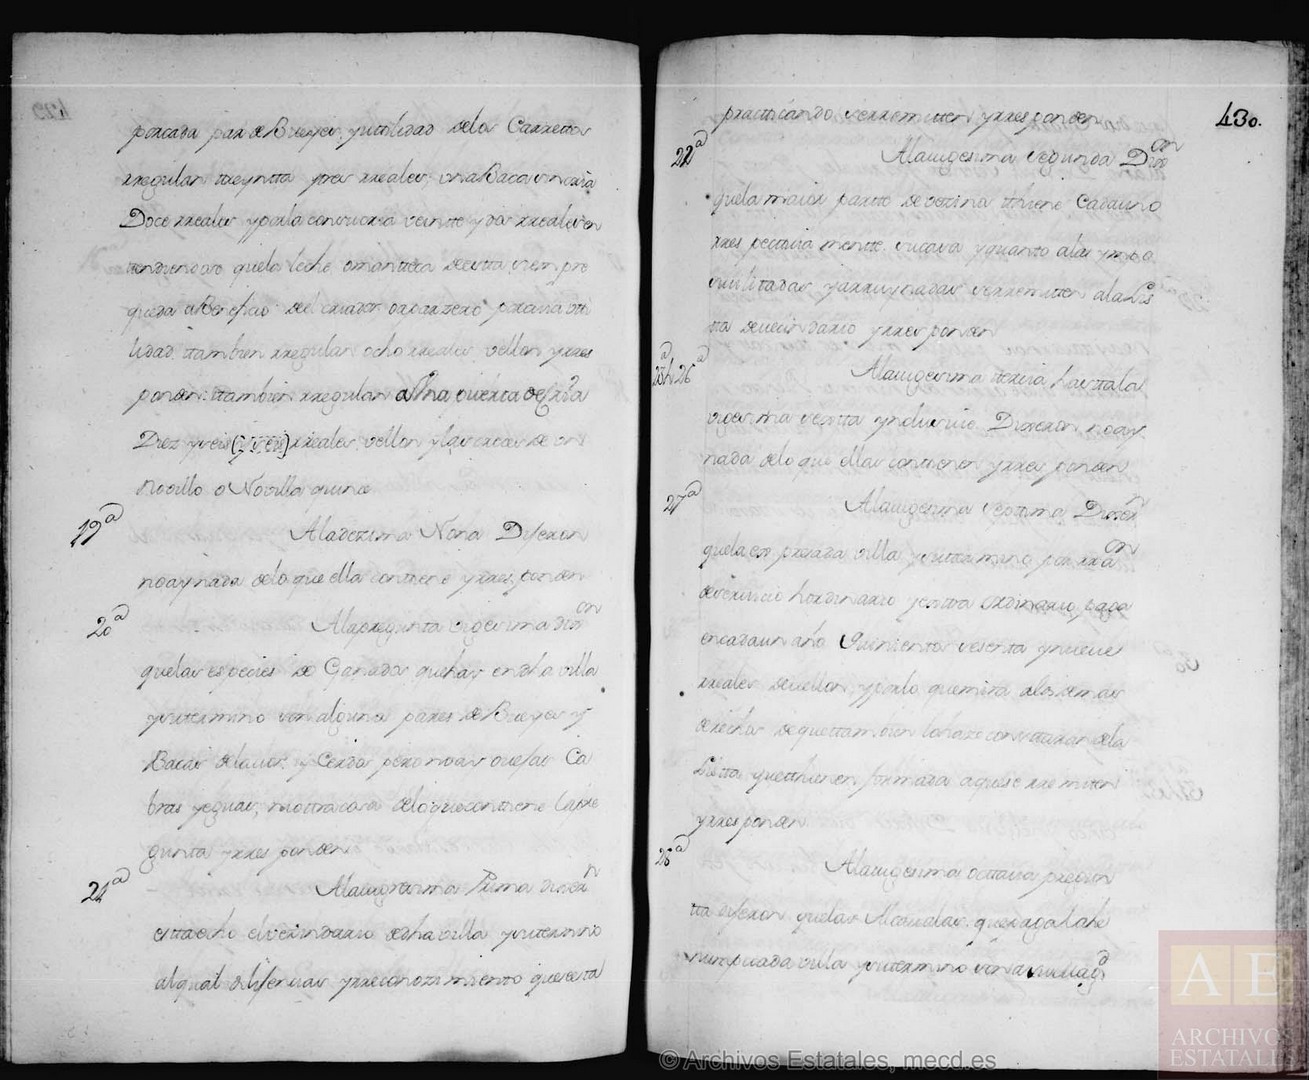 porcada par de Bueyes, y utilidad de los Carrettos
rregulan tteynta y tres rreales; una Baca vin cria
Doce rreales y por la con su cria veinte y dos rreales en
ttendiendose que la leche o mantteca de esta siempre
queda a Beneficio del criador o aparzero por cuia uti
lidad ttambien rregulan ocho rreales vellon y rres
ponden: ttambien rregulan a una puerca de Cria
Diez y seis rreales vellon y las crias de un
Novillo o Novilla quince
19ª A la dezima Nona Dixeron
no ay nada de lo que ella contiene y rresponden
20ª A la pregunta vigesima dixeron
que las especies de Ganados que hay en dha villa
y su termino son algunos pares de Bueyes y
Bacas de lavor, y Cerda pero no ay ovejas Ca
bras yeguas, ni ottra cosa de lo que contiene la pre
gunta y rresponden
21ª A la vigesima Prima dixeron
esta echo el vezindario de dha villa y su termino
al qual diligencias y rreconozimiento que se esta
430.
practicando se rremitten y rresponden
22ª A la vigesima segunda Dixeron
que la maior partte de vezinos tthiene cada uno
rrespectiva mentte su casa y quanto a las ympo
sivilitadas y arruynadas se rremitten a la Lis
ta de vecindario y rresponden
23ª h. 26ª A la vigesima ttercia hastta la
vigesima sesta ynclusive Dixeron no ay
nada de lo que ellas contienen y rresponden
27ª A la vigesima septima Dixeron
que la expresada villa y su ttermino por rrazon
de servicio hordinario y exttra ordinario, paga
en cada un año Quinientos sesenta y nueve
rreales de vellon, y por lo que mira a los demas
derechos de que ttambien lo hare constar en de la
Lista que tthienen formada a que se rremiten
y rresponden
28ª A la vigesima octtava pregun
tta dixeron que las Alcavalas que paga la he
nunpciada villa y su termino son a su Magd
© Archivos Estatales, mecd.es
AE
ARCHIVOS
ESTATALES